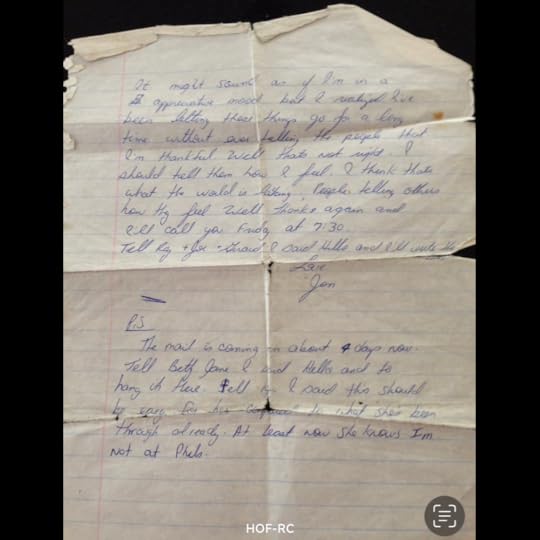 It might sound as if I'm in a
appreciative mood but I realized I've
been letting these things go for a long
time without ever telling the people that
I'm thankful. Well thats not right. I
should tell them how I feel. I think thats
what the world is . People telling others
how they feel. Well Thanks again and
I'll call you Friday at 7:30.
Tell Ray + Joe I said Hello and I'll write
Love
Jon
P.S
The mail is coming in about 4 days now.
Tell Beth Jane I said Hello and to
hang in there. Tell her I said this should
be easy for her to what shes been
through already. At least now she knows I'm
not at Phils.
HOF-RC